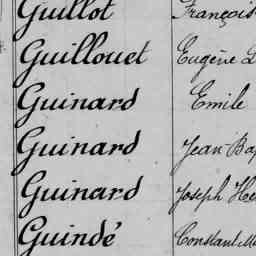 Guillot François
Guillouet Eugène
Guinard Emile
Guinard Jean Bap
Guinard Joseph
Guindé Constant